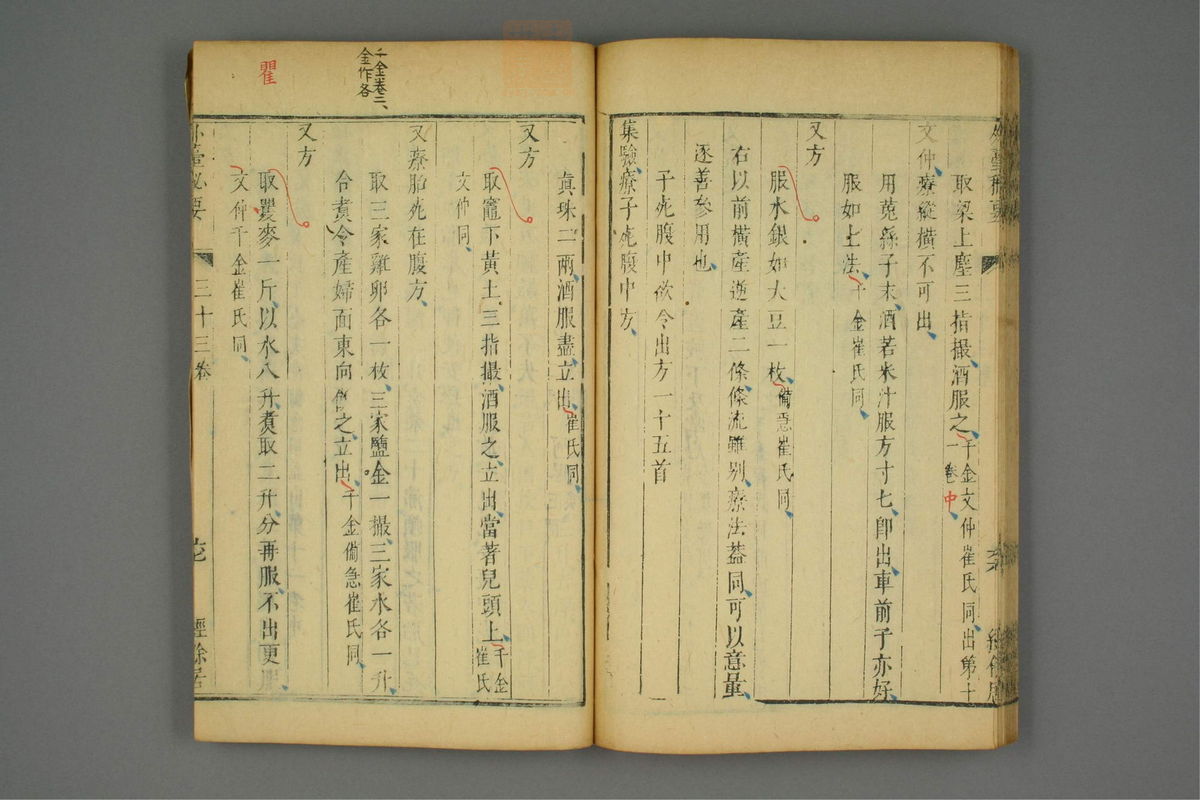 取梁上塵三指撮酒服之千金文仲崔氏同出第十
一卷中
文仲療縱橫不可出
用菟絲子末酒若米汁服方寸七卽出車前子亦好
服如上法千金崔氏同
又方
服水銀如大豆一枚備急崔氏同
右以前橫產逆產二條條流雖別療法葢同可以意量
逐善參用也
子死腹中欲令出方一十五首
集驗療子死腹中方
真珠二兩酒服盡立出崔氏同
又方
取竈下黃土三指撮酒服之立出當著兒頭上千金
崔氏
文仲同
又療胎死在腹方
千金卷二
金作各
取三家雞卵各一枚三家鹽金一撮三家水各一升
合煮令產婦面東向飮之立出千金備急崔氏同
又方
瞿
取瞿麥一斤以水八升煮取二升分再服不出更服
文仲千金崔氏同
外臺秘要
三十三卷
經餘居